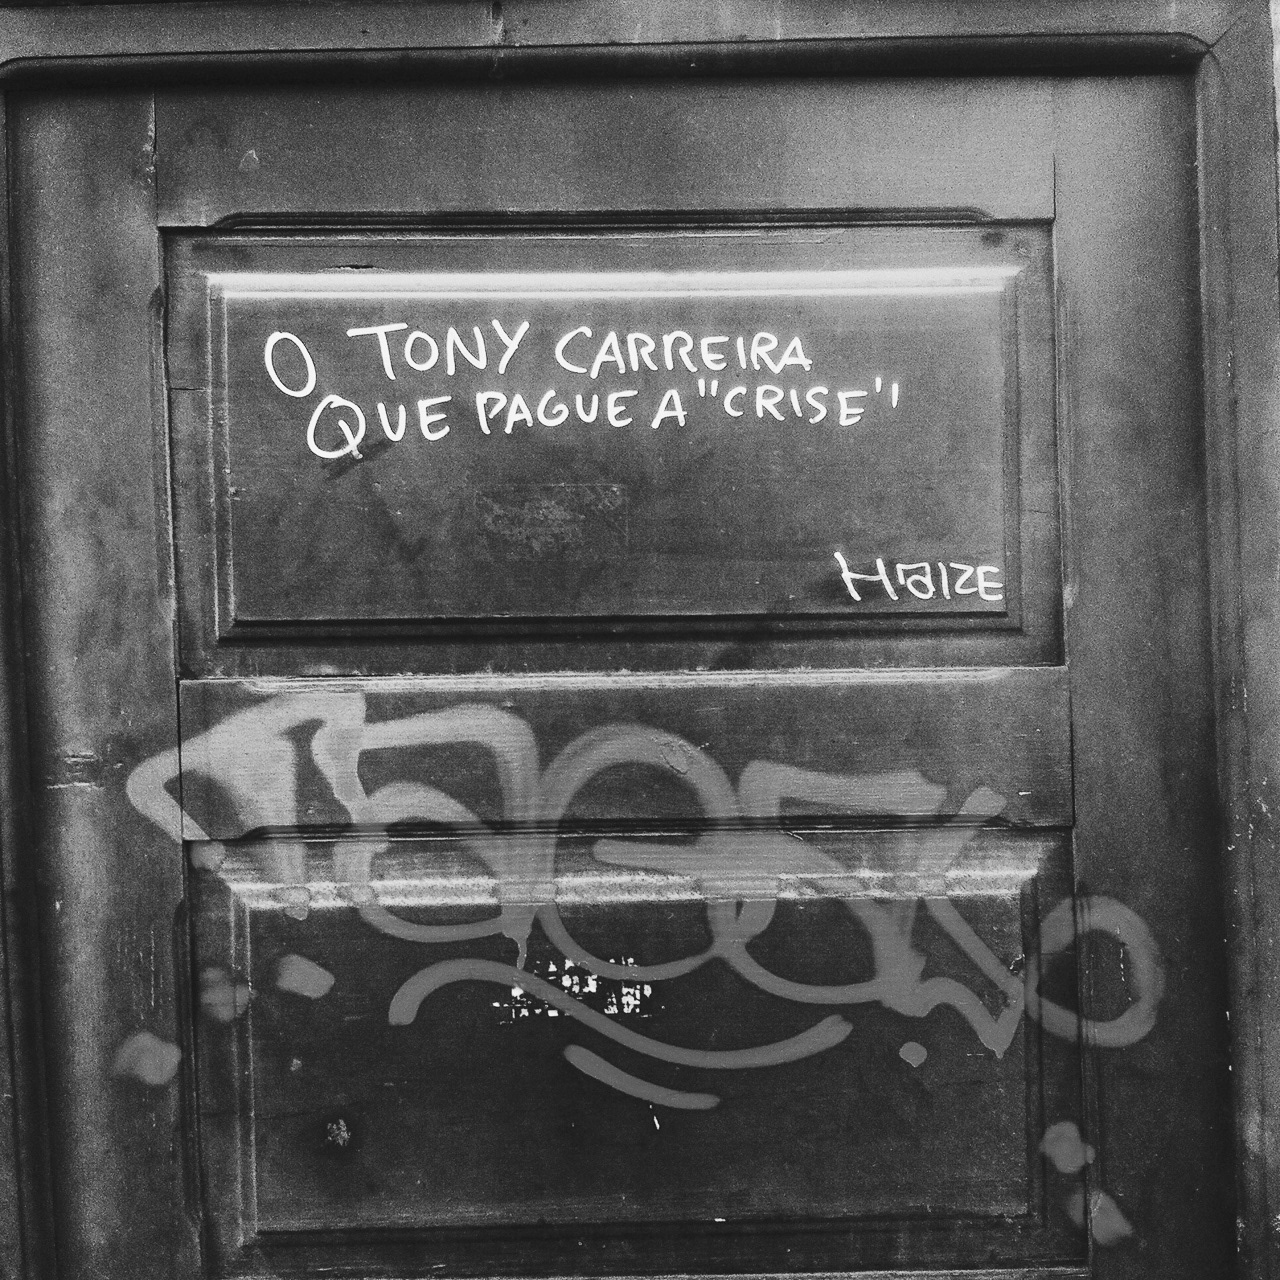 O TONY CARREIRA
QUE PAGUE A "CRISE"
HaIZE